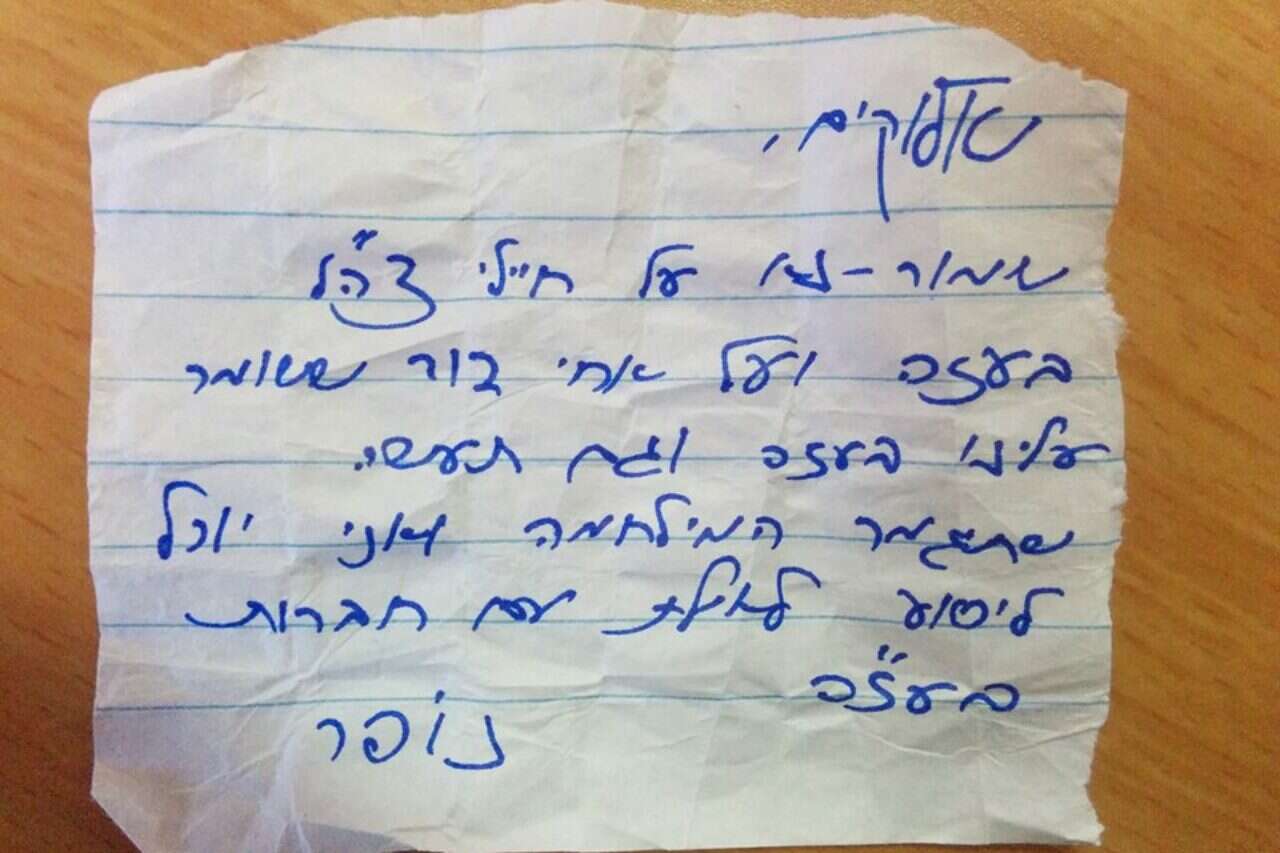 שאלוקים,
שמור-נא על חיילי צה"ל
בעזה ועל אחי דור ששומר
עלינו בעזה וגם תעשה
שתיגמר המילחמה ואני יוכל
ליסוע לאילת עם חברות
בעז"ה
נופר